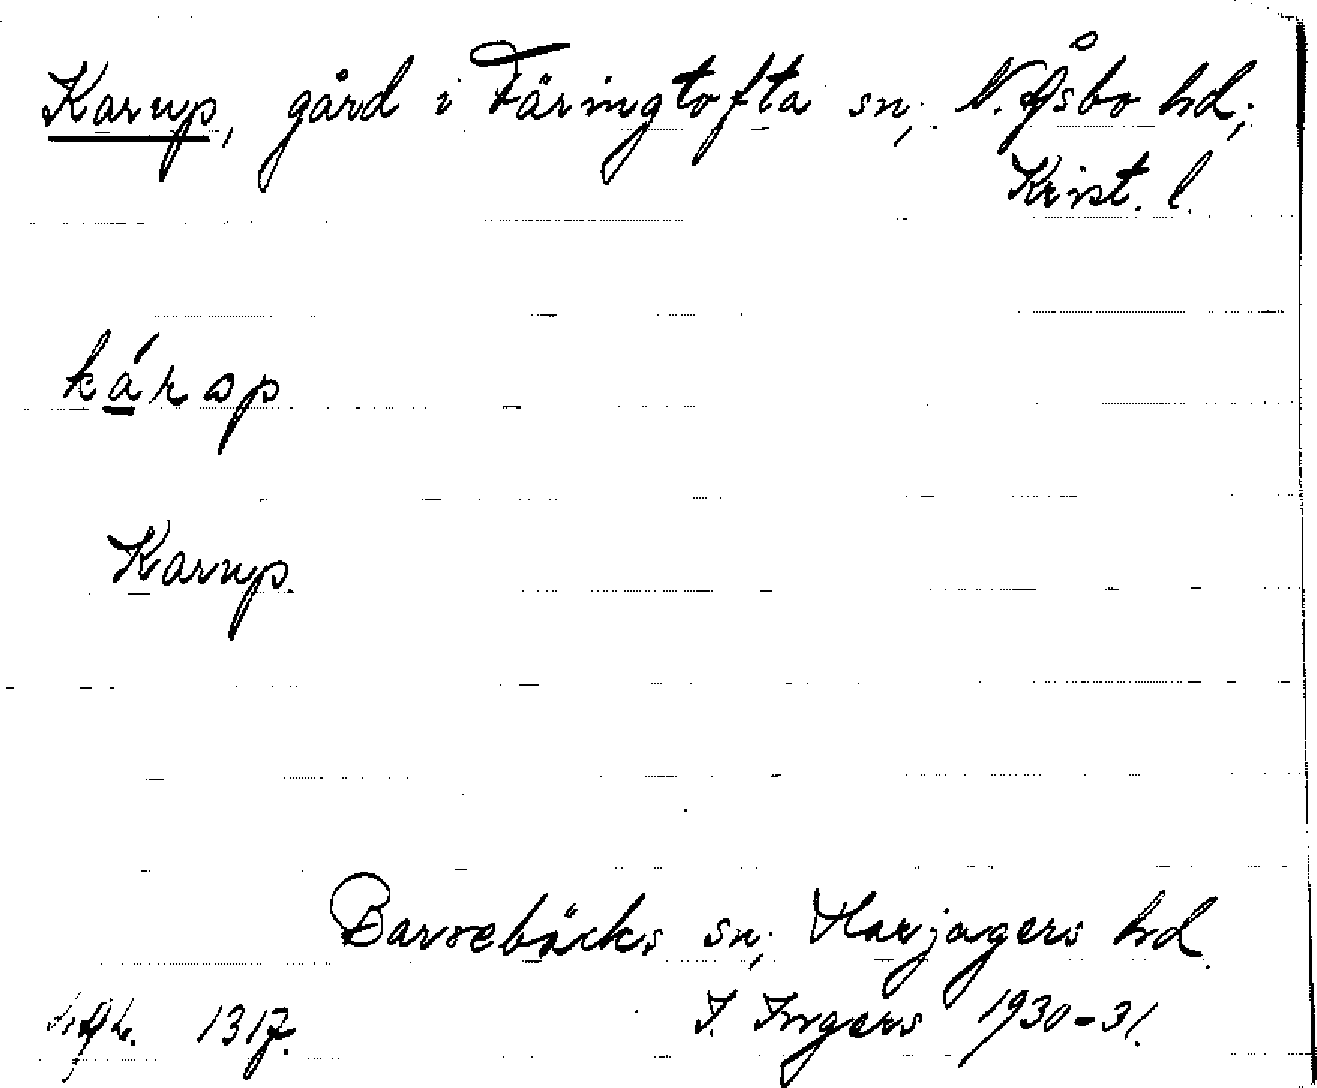 Karup, gård i Färingtofta sn, N. Åsbo hd,
Krist. l.
kárəp
Karup.
Barsebäcks sn, Harjagers hd.
1317. I. Ingers 1930-31.